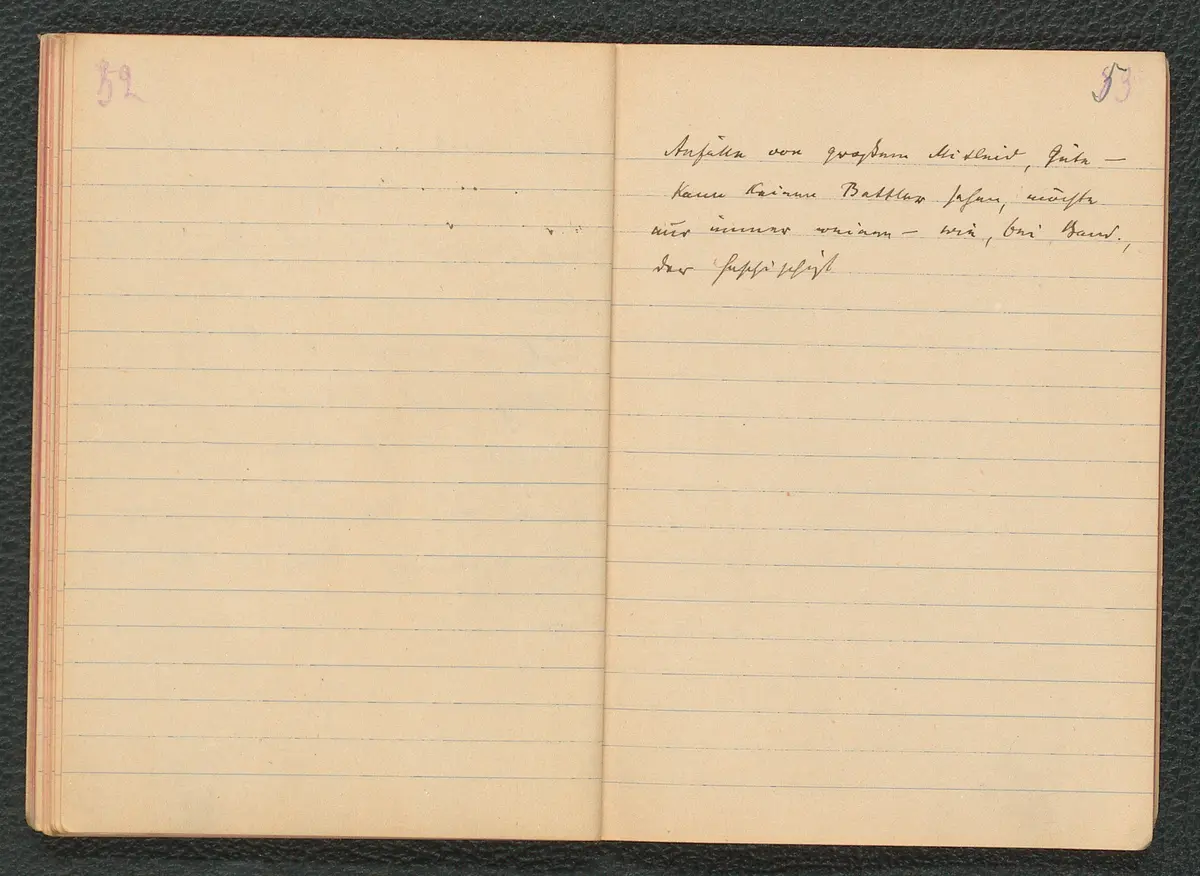 52
53
Anfälle von großem Mitleid, Güte –
kann keinen Bettler sehen, möchte
nur immer weinen – wie, bei Baud.,
der Haschischist